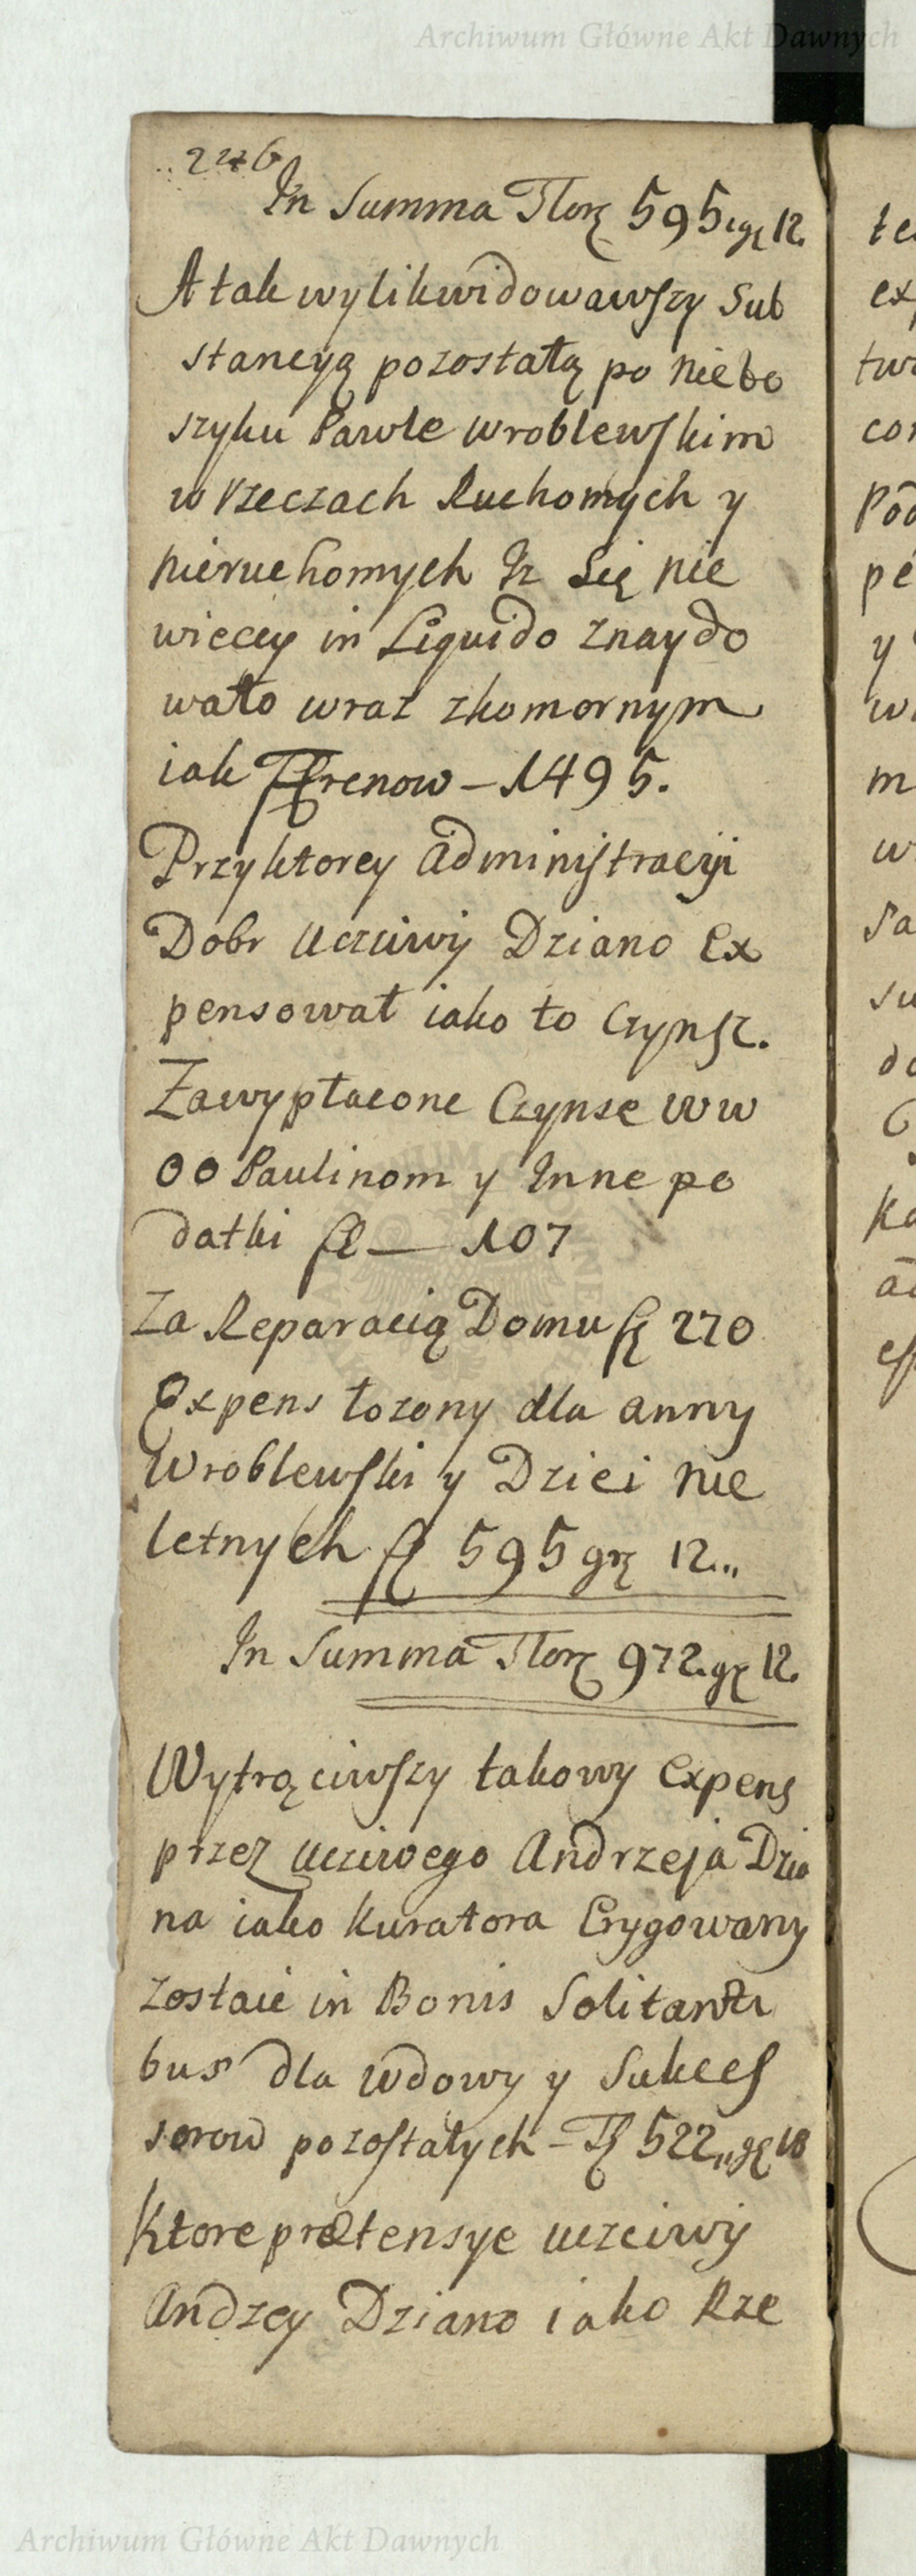 Archiwum Główne Akt Dawnych
226
In Summa Florę 595 gę 12.
A tak wylikwidowawszy Sub
stancyą pozostałą po niebo
szyku Pawle Wroblewskim
w rzeczach Ruchomych y
nieruchomych Iz Się nie
wiecey in Liquido znaydo
wało wraz zkomornym
iak Florenow – 1495.
Przyktorey administracyi
Dobr Uczciwy Dziano Ex
pensował iako to Czynsz.
Zawypłacone Czynsze WW
OO Paulinom y Inne po
datki fl — 107
Za Reparacią Domu fl 270
Expens łozony dla anny
Wroblewski y Dzieci nie
letnych fl 595 grę 12..
In Summa Florę 972. gę 12.
Wytrąciwszy takowy Expens
przez uczciwego Andrzeja Dzia
na iako kuratora Erygowany
zostaie in Bonis Solitanti
bus dla wdowy y Sukces
sorow pozostałych – Fl 522,, gę 18
Ktore prætensye uczciwy
Andrzey Dziano iako Rze
Archiwum Główne Akt Dawnych